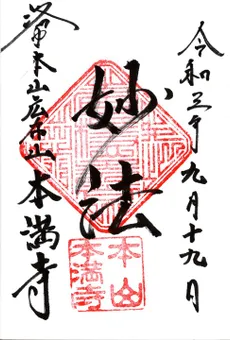 令和三年九月十九日
妙法
本山広布山本満寺
本山
本満寺